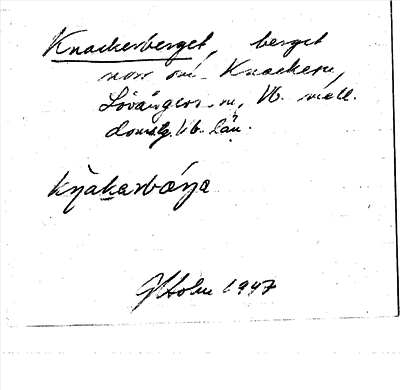 Knackerberget, berget
norr om Knackern,
Lövångers sn, Vb. mell.
doms. Vb. län.
knakarbärja
Holm 1947